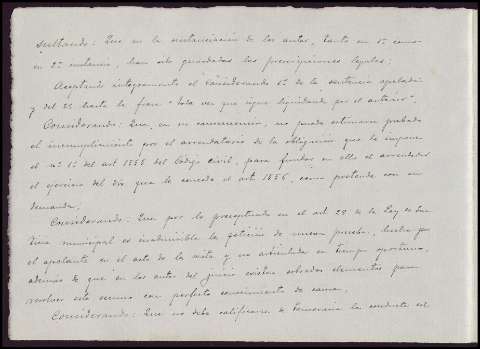 sultando: Que en la sustanciación de los autos, tanto en 1ª como
en 2ª instancia, han sido guardadas las prescripciones legales;
Aceptando íntegramente el Considerando 1º de la sentencia apelada
y del 2º hasta la frase "toda vez que sigue liquidando por el anterior".
Considerando: Que, en su consecuencia, no puede estimarse probado
el incumplimiento por el arrendatario de la obligación que le impone
el nº 1º del art 1555 del Código civil, para fundar en ello el arrendador
el ejercicio del dro que le concede el art. 1556, como pretende con su
demanda.
Considerando: Que por lo preceptuado en el art 28 de la Ley de Jus
ticia municipal es inadmisible la petición de nueva prueba, hecha por
el apelante en el acto de la vista y no articulada en tiempo oportuno,
además de que en los autos del juicio existen sobrados elementos para
resolver este recurso con perfecto conocimiento de causa.
Considerando: Que no debe calificarse de temeraria la conducta del